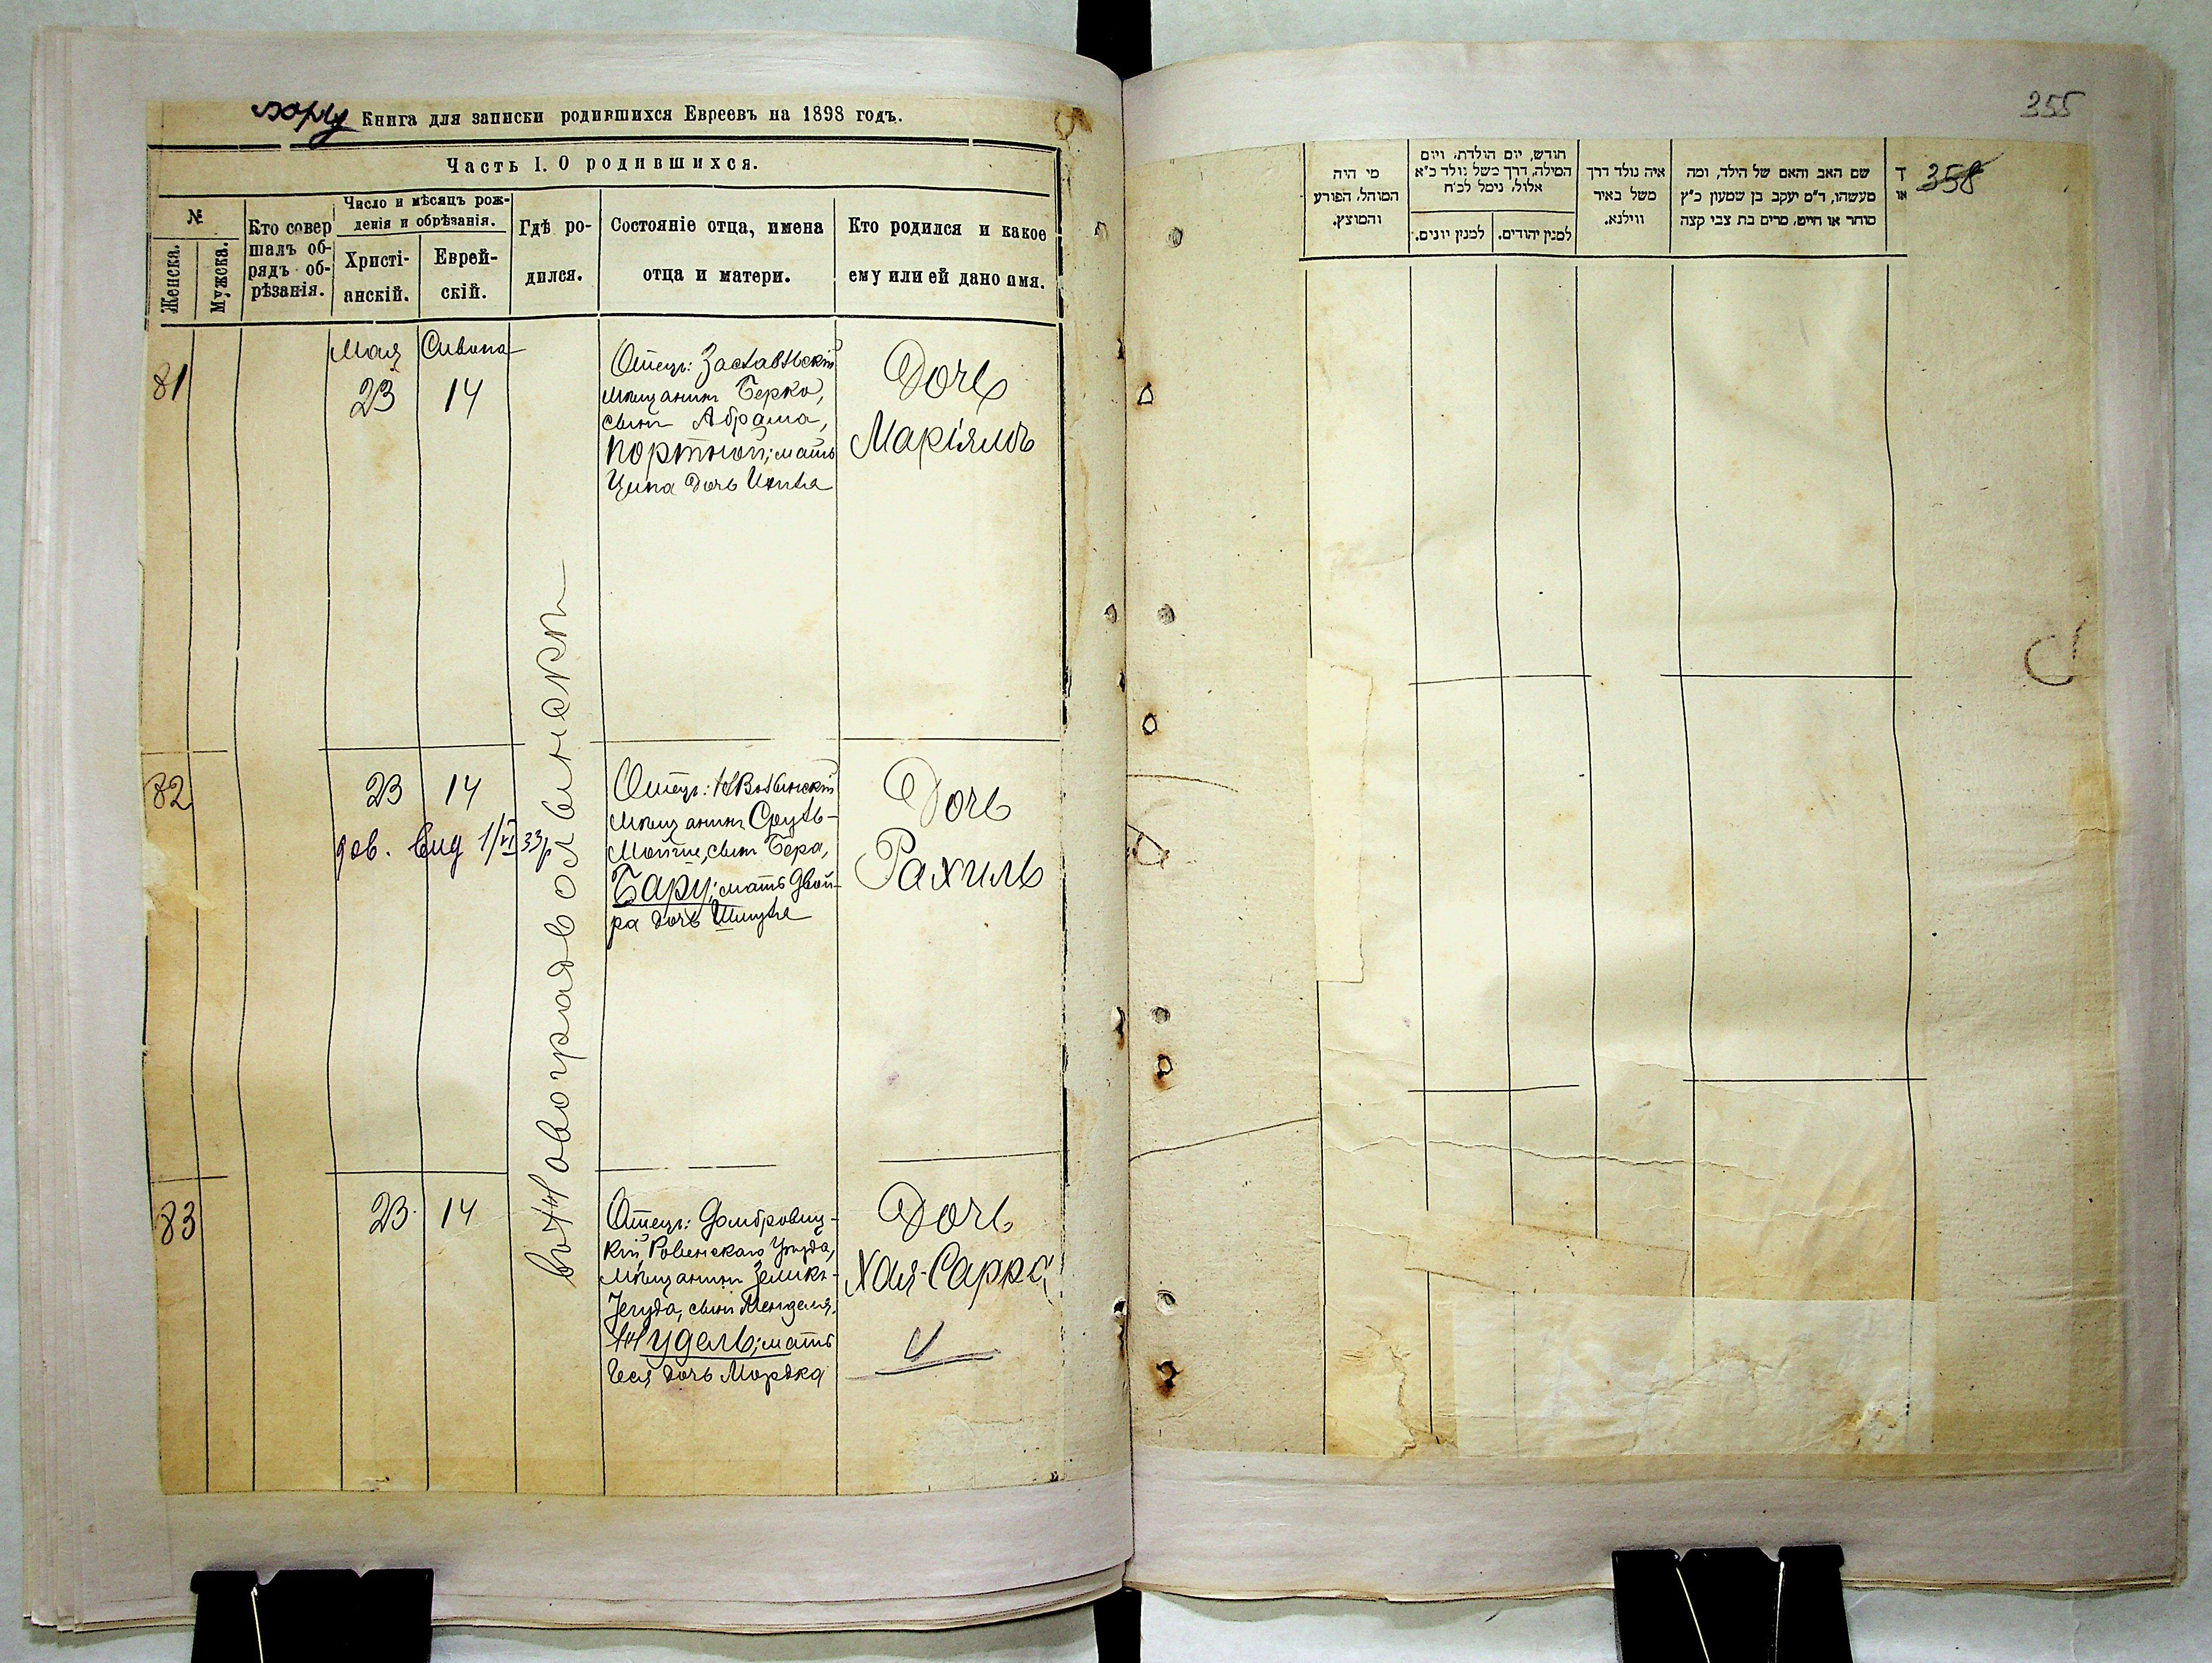 Книга для записки родившихся Евреевъ на 1898 годъ.
Часть I. О родившихся.
№
Женска.
Мужска.
Кто совер
шалъ об-
рядъ об-
рѣзанія.
Число и мѣсяцъ рож-
денія и обрѣзанія.
Христі-
анскій.
Еврей-
скій.
Гдѣ ро-
дился.
Состояніе отца, имена
отца и матери.
Кто родился и какое
ему или ей дано имя.
81
Мая
23
Сивана
14
Отецъ: Заславльскій
мѣщанинъ Берко,
сынъ Абрама,
Портной; мать
Ципа дочь
Дочь
Маріямъ
въ Новоградволынскѣ
82
23
14
дов. вид 1/VI 33р
Отецъ:
мѣщанинъ Сруль-
Мойше, сынъ Бера,
Бару; мать Двой-
ра дочь Шмуля
Дочь
Рахиль
83
23
14
Отецъ: Домбровиц-
кій, Ровенскаго Уѣзда,
мѣщанинъ Зеликъ-
Іегуда, сынъ Менделя,
Нудель; мать
дочь Мордка
Дочь
Хая-Сарра
355
358
מי היה
המוהל, הפורע
והמוצץ.
חודש, יום הולדת, ויום
המילה, דרך משל נולד כ״א
אלול, נימל לכ״ח
למנין יונים.
למנין יהודים.
איה נולד דרך
משל באיר
ווילנא.
שם האב והאם של הילד, ומה
מעשהו, ד״מ יעקב בן שמעון כ״ץ
סוחר או חייט, מרים בת צבי קצה